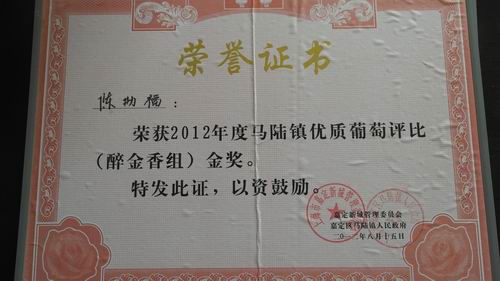 荣誉证书
陈功福：
荣获2012年度马陆镇优质葡萄评比
（醉金香组）金奖。
特发此证，以资鼓励。
嘉定新城管理委员会
嘉定区马陆镇人民政府
二〇一二年八月十五日